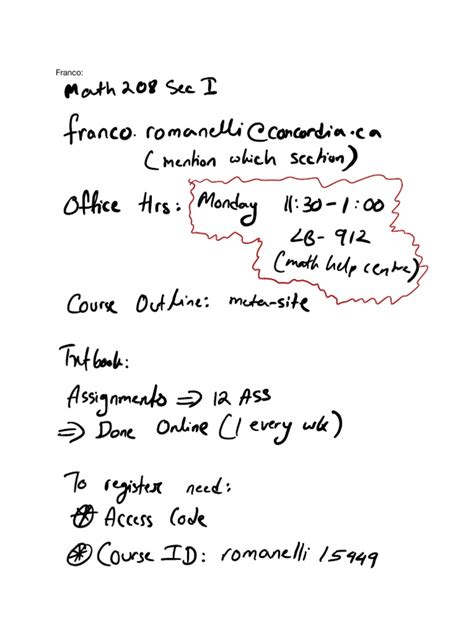 Franco:
Math 208 Sec I
franco.romanelli@concordia.ca
(mention which section)
Office Hrs: Monday 11:30-1:00
LB-912
(math help centre)
Course Outline: meta-site
Textbook:
Assignments ⇒ 12 ASS
⇒ Done Online (1 every wk)
To register need:
* Access Code
* Course ID: romanelli 15949